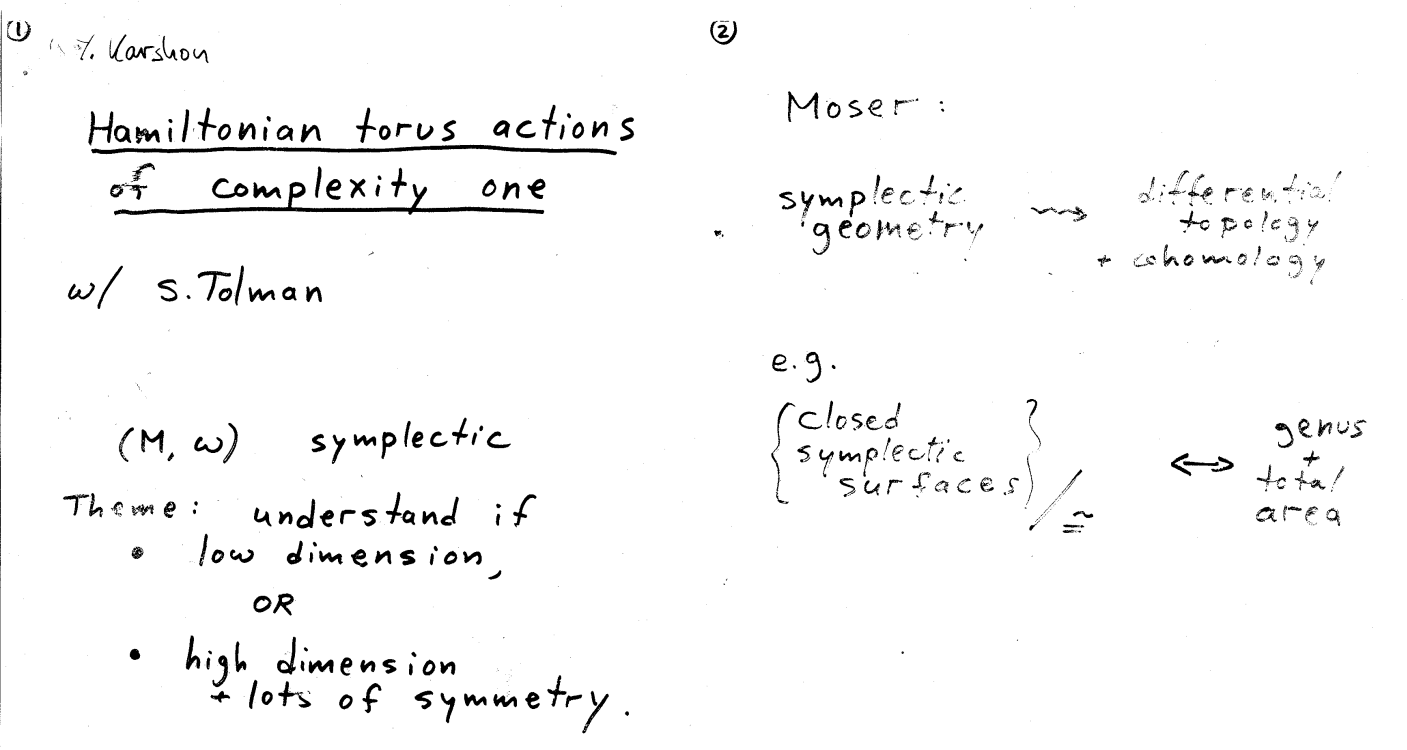 ①
Y. Karshon
Hamiltonian torus actions
of complexity one
w/ S. Tolman
(M, ω) symplectic
Theme: understand if
• low dimension,
OR
• high dimension
+ lots of symmetry.
②
Moser:
symplectic geometry ⇝ differential topology + cohomology
e.g.
{closed symplectic surfaces}/≅ ↔ genus + total area